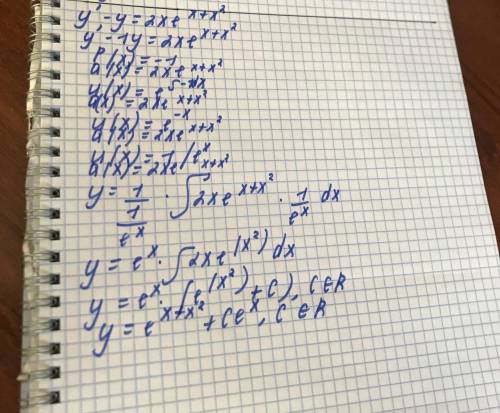 y' - y = 2xe^{x+x²}
y' - 1y = 2xe^{x+x²}
P(x) = -1
Q(x) = 2xe^{x+x²}
u(x) = e^{∫-1dx}
Q(x) = 2xe^{x+x²}
u(x) = e^{-x}
Q(x) = 2xe^{x+x²}
u(x) = 1/e^x
Q(x) = 2xe^{x+x²}
y = 1/(1/e^x) · ∫ 2xe^{x+x²} · 1/e^x dx
y = e^x · ∫ 2xe^{(x²)} dx
y = e^x · (e^{(x²)} + C), C∈R
y = e^{x+x²} + Ce^x, C∈R